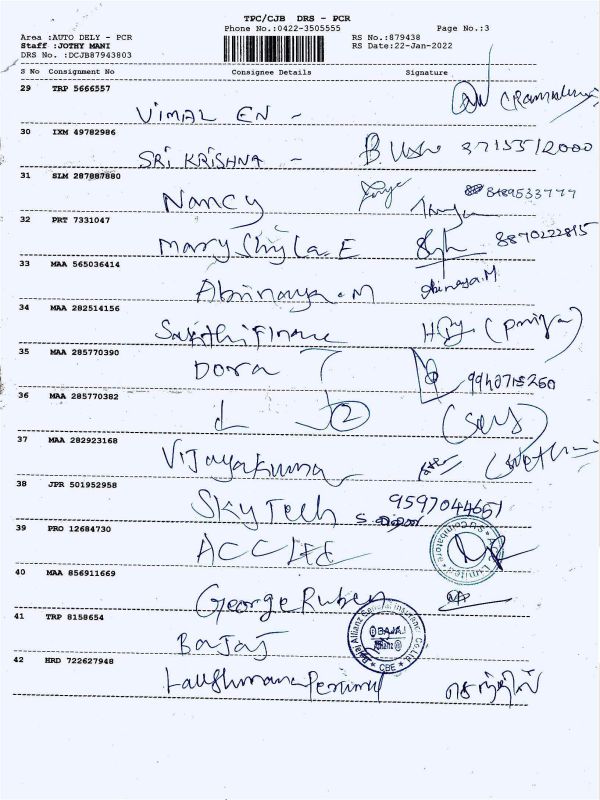 TPC/CJB DRS - PCR
Phone No.:0422-3505555 Page No.:3
Area :AUTO DELY - PCR RS No.:879438
Staff :JOTHY MANI RS Date:22-Jan-2022
DRS No. :DCJB87943803
S No Consignment No Consignee Details Signature
29 TRP 5666557
Vimal EN -
30 IXM 49782986
SRI KRISHNA - B. Usha
31 SLM 287887880
Nancy 8489533777
32 PRT 7331047
Mary Shyla. E 8870222815
33 MAA 565036414
Abinaya.M Abinaya.M
34 MAA 282514156
Sakthi Finance (Priya)
35 MAA 285770390
Dora 9940715260
36 MAA 285770382
37 MAA 282923168
Vijayakumar
38 JPR 501952958
Sky Tech 9597044651
39 PRO 12684730
ACC Ltd
40 MAA 856911669
George Ruben
41 TRP 8158654
Bajaj
Bajaj Allianz General Insurance Co. Ltd.
BAJAJ
Allianz
* CBE *
42 HRD 722627948
Lakshmana Perumal